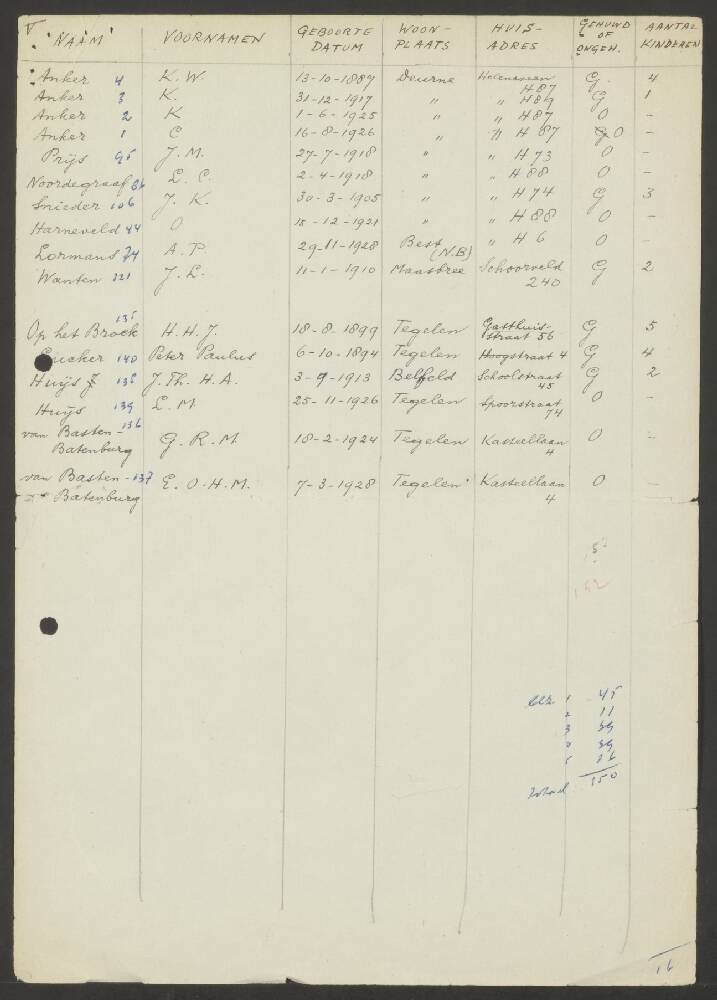 V
NAAM VOORNAMEN GEBOORTE DATUM WOON-PLAATS HUIS-ADRES GEHUWD OF ONGEH. AANTAL KINDEREN
Anker 4 K. W. 13-10-1887 Deurne Helenaveen H 87 G. 4
Anker 3 K. 31-12-1917 " " H 89 G 1
Anker 2 K 1-6-1925 " " H 87 O -
Anker 1 C 16-8-1926 " " H 87 O -
Prijs 95 J. M. 27-7-1918 " " H 73 O -
Noordegraaf 86 L. C. 2-4-1918 " " H 88 O -
Snieder 106 J. K. 30-3-1905 " " H 74 G 3
Harneveld 44 O 18-12-1921 " " H 88 O -
Lormans 74 A. P. 29-11-1928 Best (N.B) " H 6 O
Wanten 121 J. L. 11-1-1910 Maasbree Schoorveld 240 G 2
Op het Broek 135 H. H. J. 18-8-1899 Tegelen Gasthuis-straat 56 G 5
140 Peter Paulus 6-10-1894 Tegelen Hoogstraat 4 G 4
Huijs 138 J. Th. H. A. 3-9-1913 Belfeld Schoolstraat 45 G 2
Huijs 139 L. M. 25-11-1926 Tegelen Spoorstraat 74 O -
van Basten-Batenburg 136 G. R. M. 18-2-1924 Tegelen Kasteellaan 4 O -
van Basten-Batenburg 137 E. O. H. M. 7-3-1928 Tegelen Kasteellaan 4 O -
152
blz. 1 45
2 11
3 39
4 39
5 16
totaal 150
16